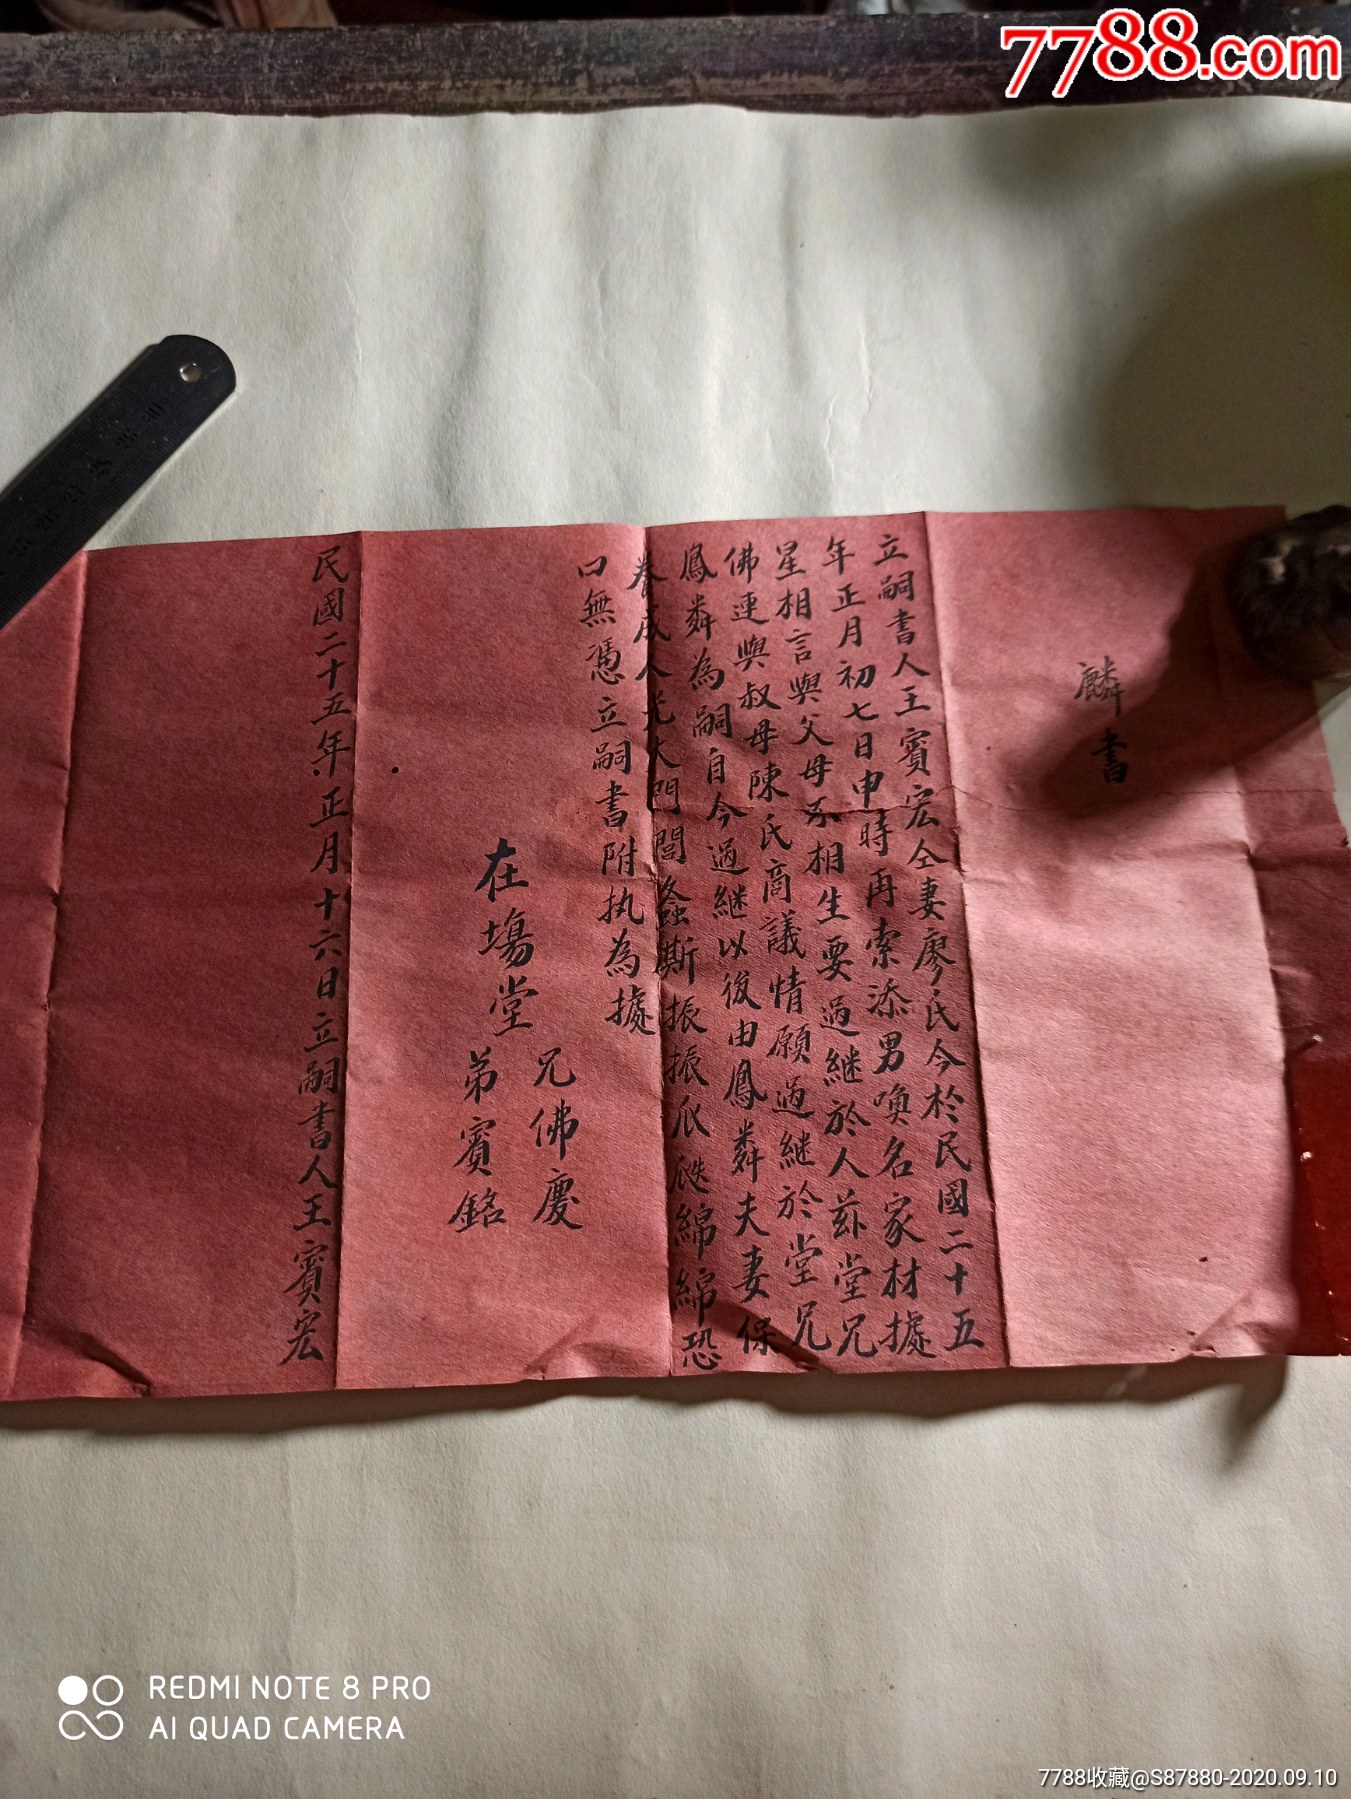 7788.com
麟書
立嗣書人王賓宏仝妻廖氏今於民國二十五
年正月初七日申時再索添男喚名家材據
星相言與父母不相生要過継於人茲堂兄
佛連與叔母陳氏商議情願過継於堂兄
鳳粦為嗣自今過継以後由鳳粦夫妻保
養成人光大門閭螽斯振振瓜瓞綿綿恐
口無憑立嗣書附执為據
在塲堂
兄佛慶
弟賓銘
民國二十五年正月十六日立嗣書人王賓宏
REDMI NOTE 8 PRO
AI QUAD CAMERA
7788收藏@S87880-2020.09.10